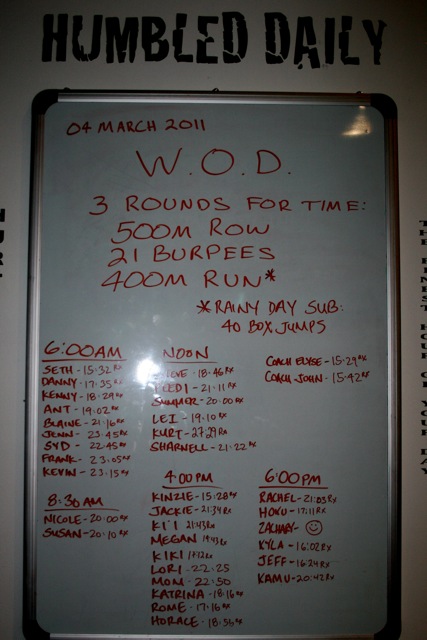 HUMBLED DAILY
04 MARCH 2011
W.O.D.
3 ROUNDS FOR TIME:
500M ROW
21 BURPEES
400M RUN*
*RAINY DAY SUB:
40 BOX JUMPS
6:00AM
SETH - 15:32 RX
DANNY - 17:35 RX
KENNY - 18:29 RX
ANT - 19:02 RX
BLAINE - 21:16 RX
JENN - 23:45 RX
SYD - 22:45 RX
FRANK - 23:05 RX
KEVIN - 23:15 RX
8:30AM
NICOLE - 20:00 RX
SUSAN - 20:10 RX
NOON
18:46 RX
21:11 RX
SUMMER - 20:00 RX
LEI - 19:10 RX
KURT - 27:29 RX
SHARNELL - 21:22 RX
COACH ELYSE - 15:29 RX
COACH JOHN - 15:42 RX
4:00PM
KINZIE - 15:28 RX
JACKIE - 21:34 RX
KI'I 21:43 RX
MEGAN 19:43 RX
KIKI
LORI - 22:25
MOM - 22:50
KATRINA - 18:16 RX
ROME - 17:16 RX
HORACE - 18:56 RX
6:00PM
RACHEL - 21:03 RX
HOKU - 17:11 RX
ZACHARY -
KYLA - 16:02 RX
JEFF - 16:24 RX
KAMU - 20:42 RX
THE FINEST HOUR OF YOUR DAY